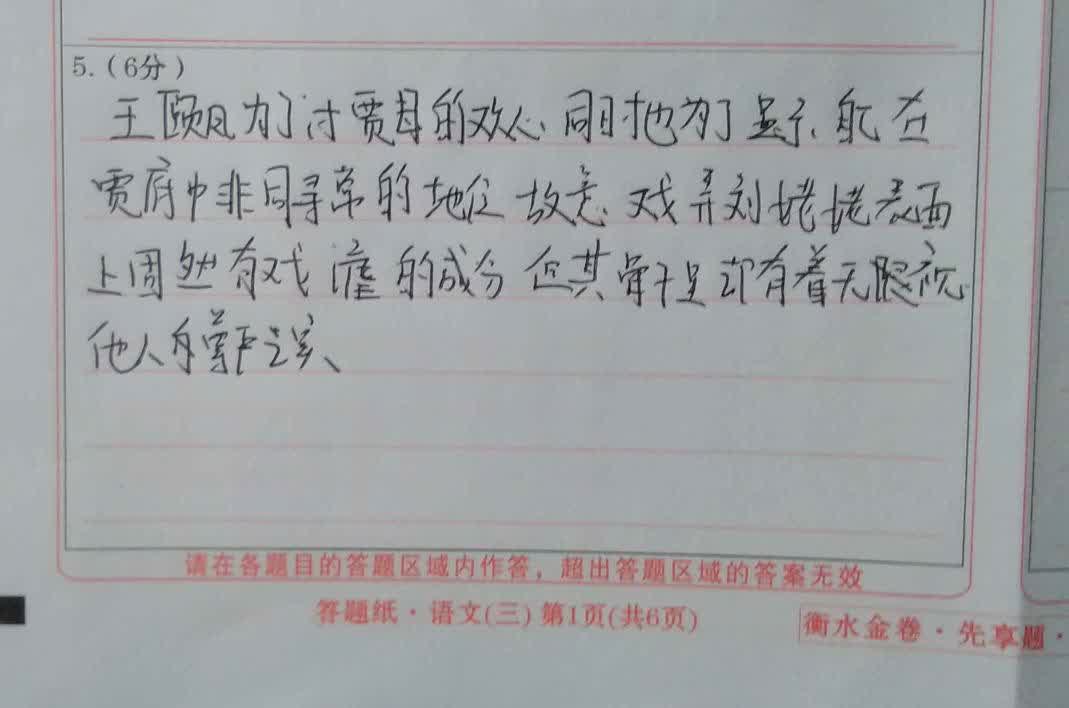 5.(6分)
王熙凤为了讨贾母的欢心、同时也为了显示、自己在
贾府中非同寻常的地位故意、戏弄刘姥姥表面
上固然有戏谑的成分但其骨子里却有着无限视
他人的尊严之实、
请在各题目的答题区域内作答，超出答题区域的答案无效
答题纸·语文(三) 第1页(共6页)
衡水金卷·先享题·